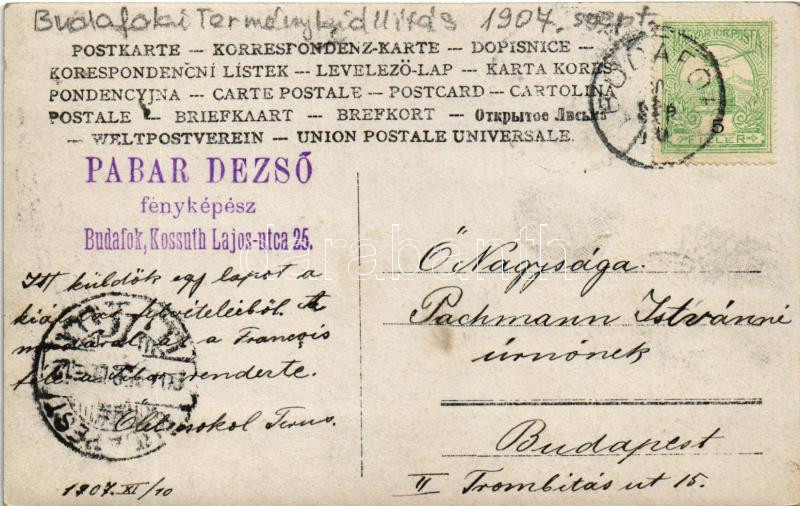 Budafoki Terménykiállítás 1907. szept.
POSTKARTE — KORRESPONDENZ-KARTE — DOPISNICE —
KORESPONDENČNÍ LÍSTEK — LEVELEZŐ-LAP — KARTA KORES
PONDENCYJNA — CARTE POSTALE — POSTCARD — CARTOLINA
POSTALE — BRIEFKAART — BREFKORT — Открытое Письмо
— WELTPOSTVEREIN — UNION POSTALE UNIVERSALE.
MAGYAR KIR. POSTA
5
FILLÉR
BUDAFOK
PABAR DEZSŐ
fényképész
Budafok, Kossuth Lajos-utca 25.
Itt küldök egy lapot a
felvételeiből. A
a Francois
féle rendezte.
Csókol Terus.
1907. XI/10
Ő Nagysága
Pachmann Istvánné
úrnőnek
Budapest
II Trombitás ut 15.
darabanth